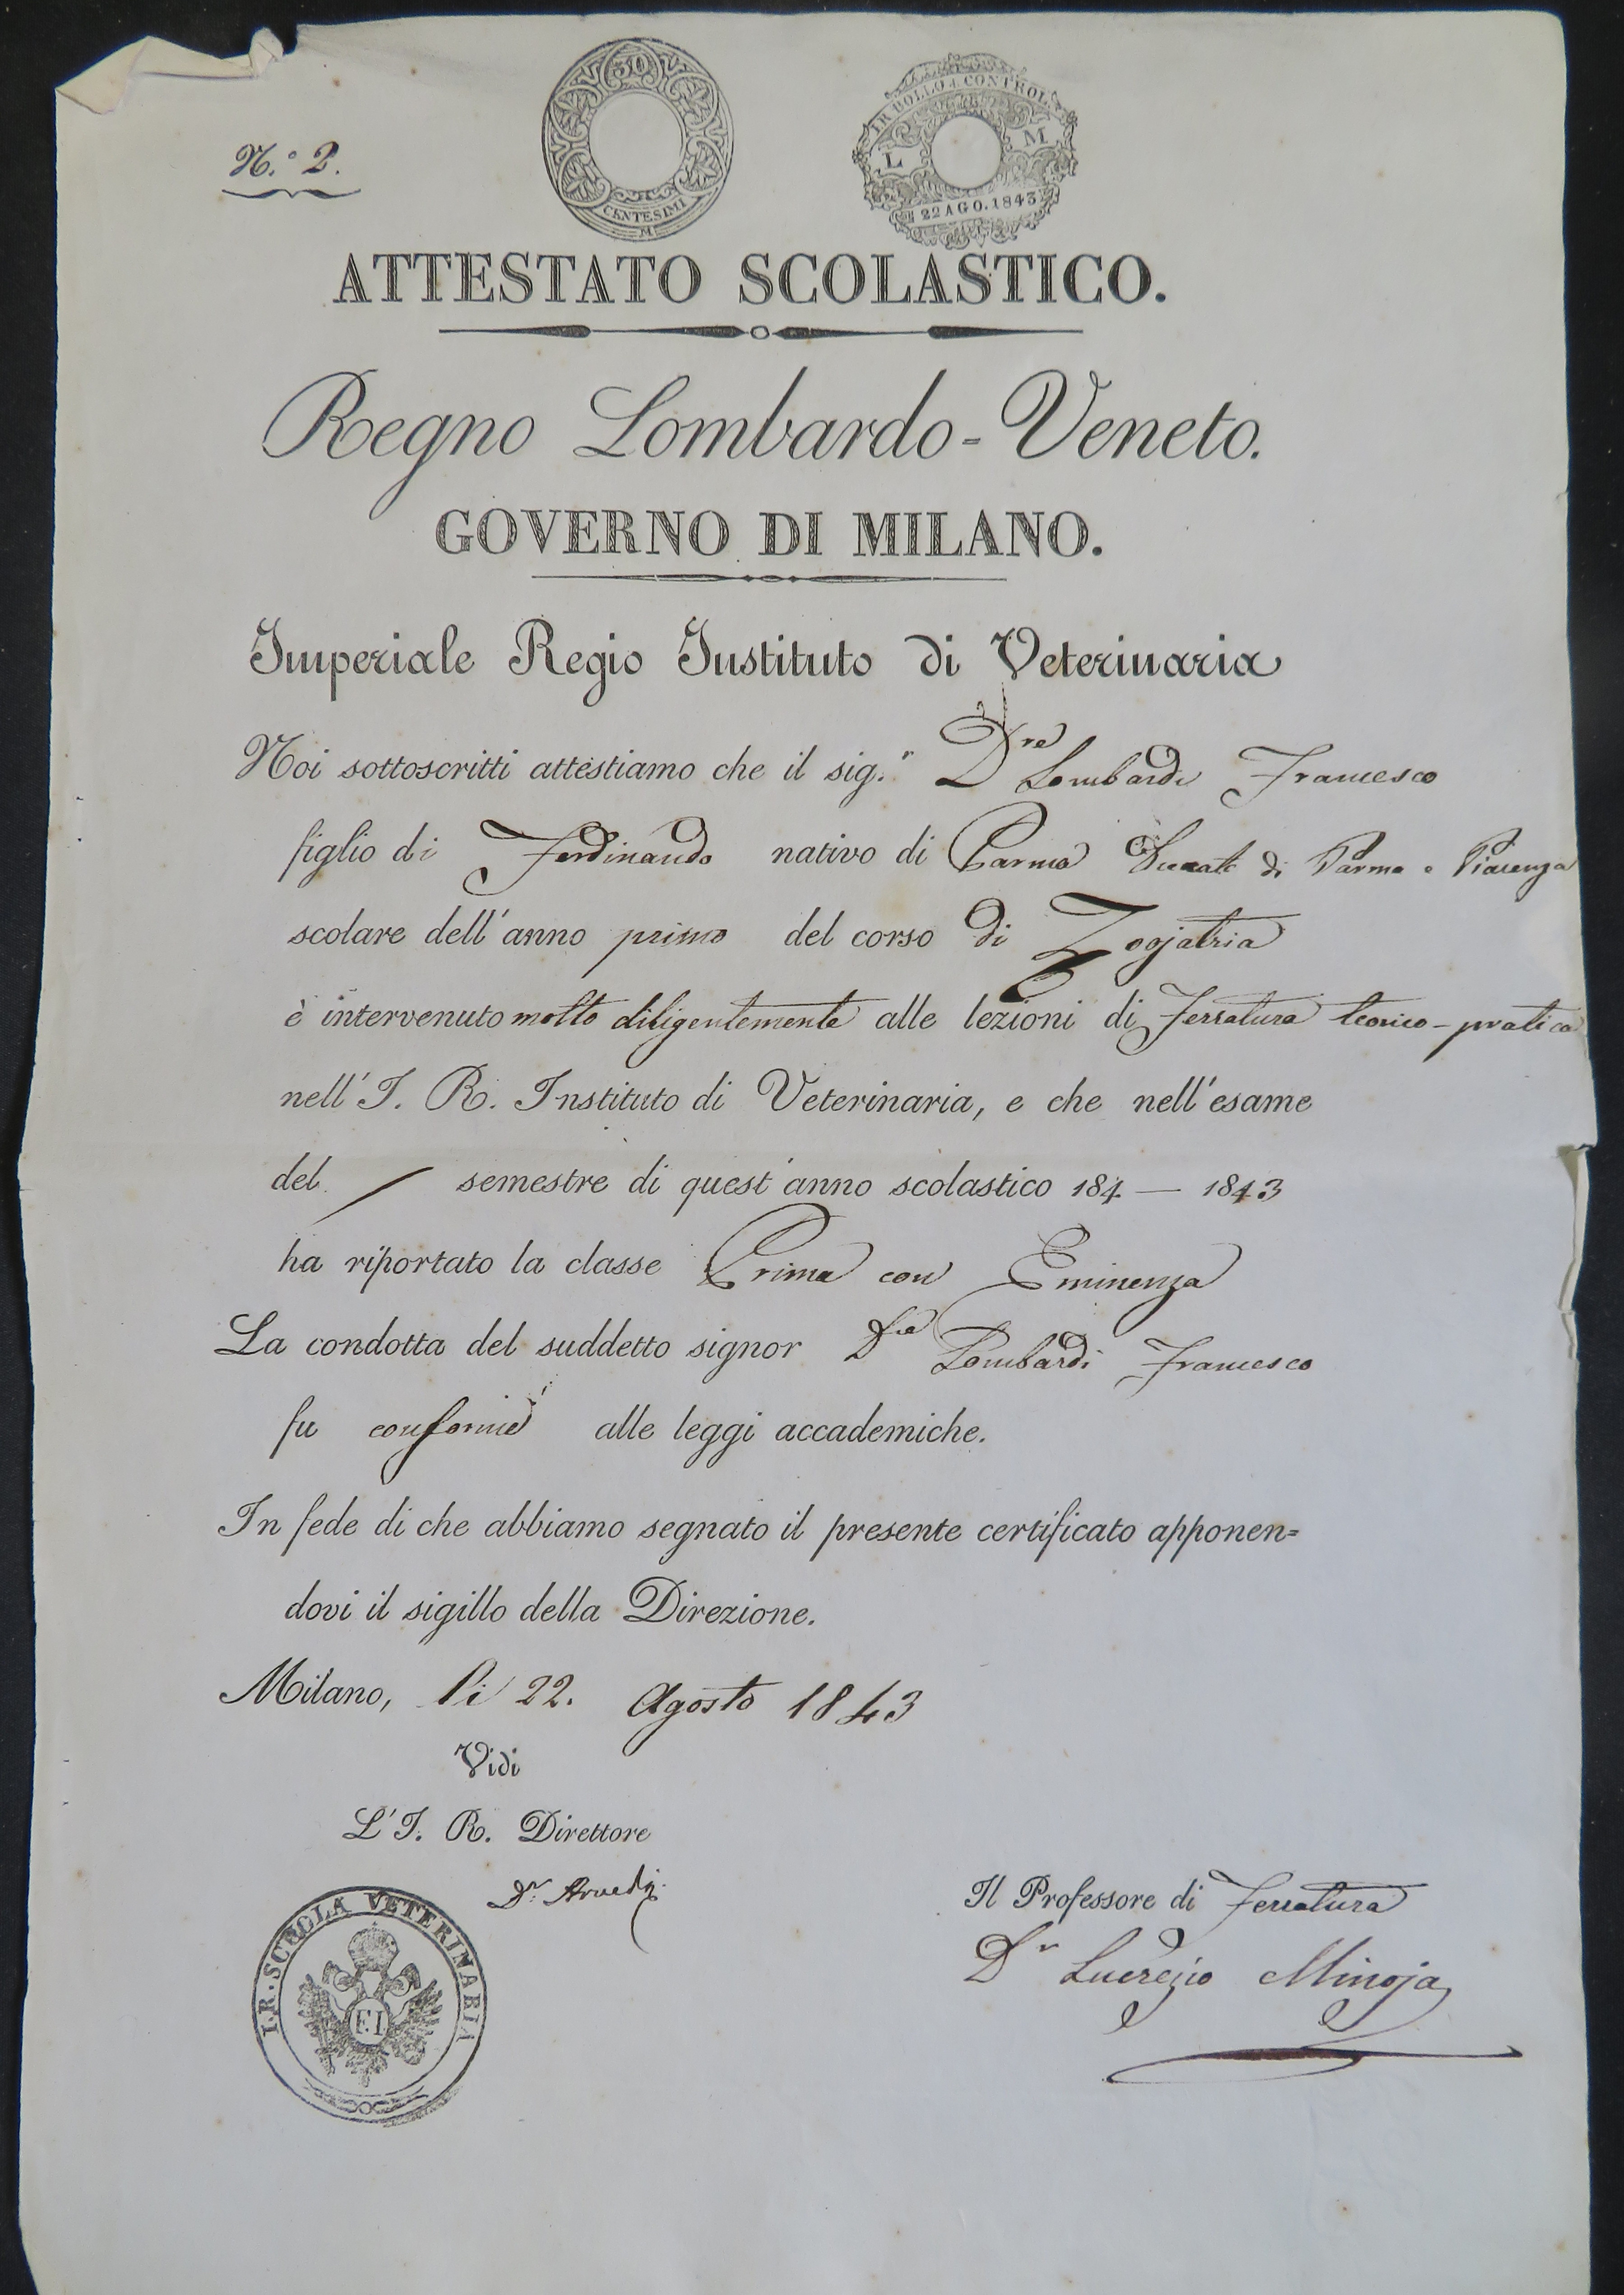 N.º 2.
30
CENTESIMI
M
IR BOLLO DI CONTROL
L M
22 AGO. 1843
ATTESTATO SCOLASTICO.
Regno Lombardo-Veneto.
GOVERNO DI MILANO.
Imperiale Regio Instituto di Veterinaria
Noi sottoscritti attestiamo che il sig.r Dre Lombardi Francesco
figlio di Ferdinando nativo di Parma Ducato di Parma e Piacenza
scolare dell'anno primo del corso di Zoojatria
è intervenuto molto diligentemente alle lezioni di Ferratura teorico-pratica
nell'I. R. Instituto di Veterinaria, e che nell'esame
del / semestre di quest'anno scolastico 184 — 1843
ha riportato la classe Prima con Eminenza
La condotta del suddetto signor Dre Lombardi Francesco
fu conforme alle leggi accademiche.
In fede di che abbiamo segnato il presente certificato apponen=
dovi il sigillo della Direzione.
Milano, li 22. Agosto 1843
Vidi
L'I. R. Direttore
Dr.
Il Professore di Ferratura
Dr Lucrezio Minoja
I. R. SCUOLA VETERINARIA
F.I